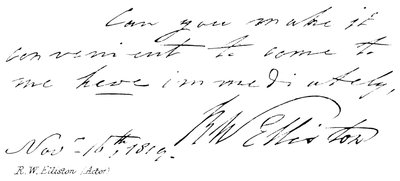 Can you make it
convenient to come to
me here immediately,
RWElliston
Novr 16th, 1819.
R. W. Elliston (Actor)